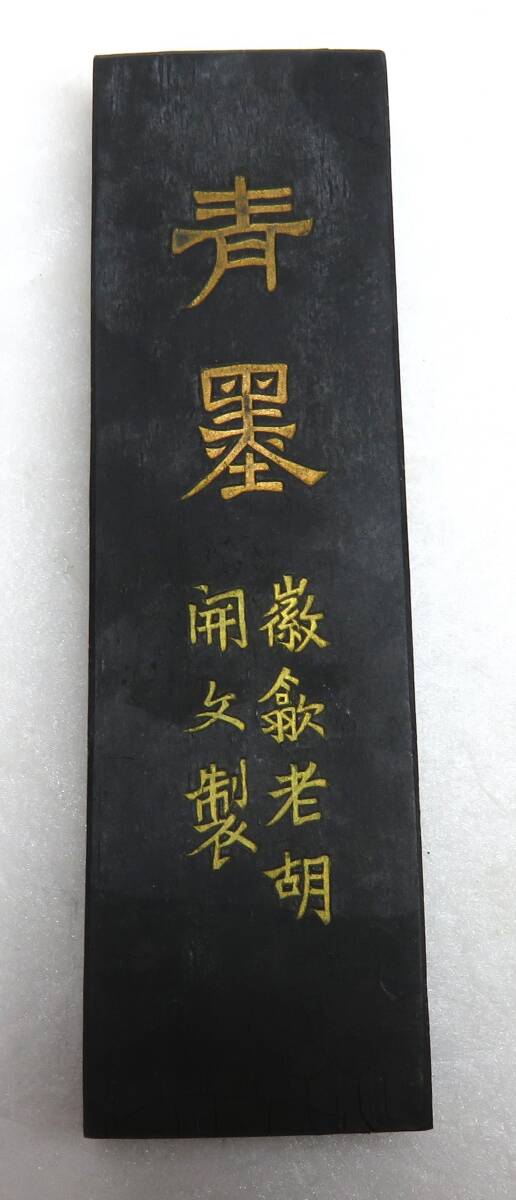 青墨
徽歙老胡
開文製